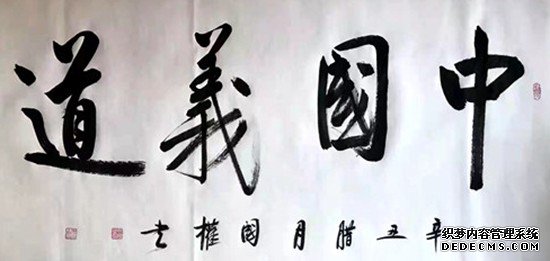 中國義道
辛丑腊月國權书
织梦内容管理系统
DEDECMS.COM